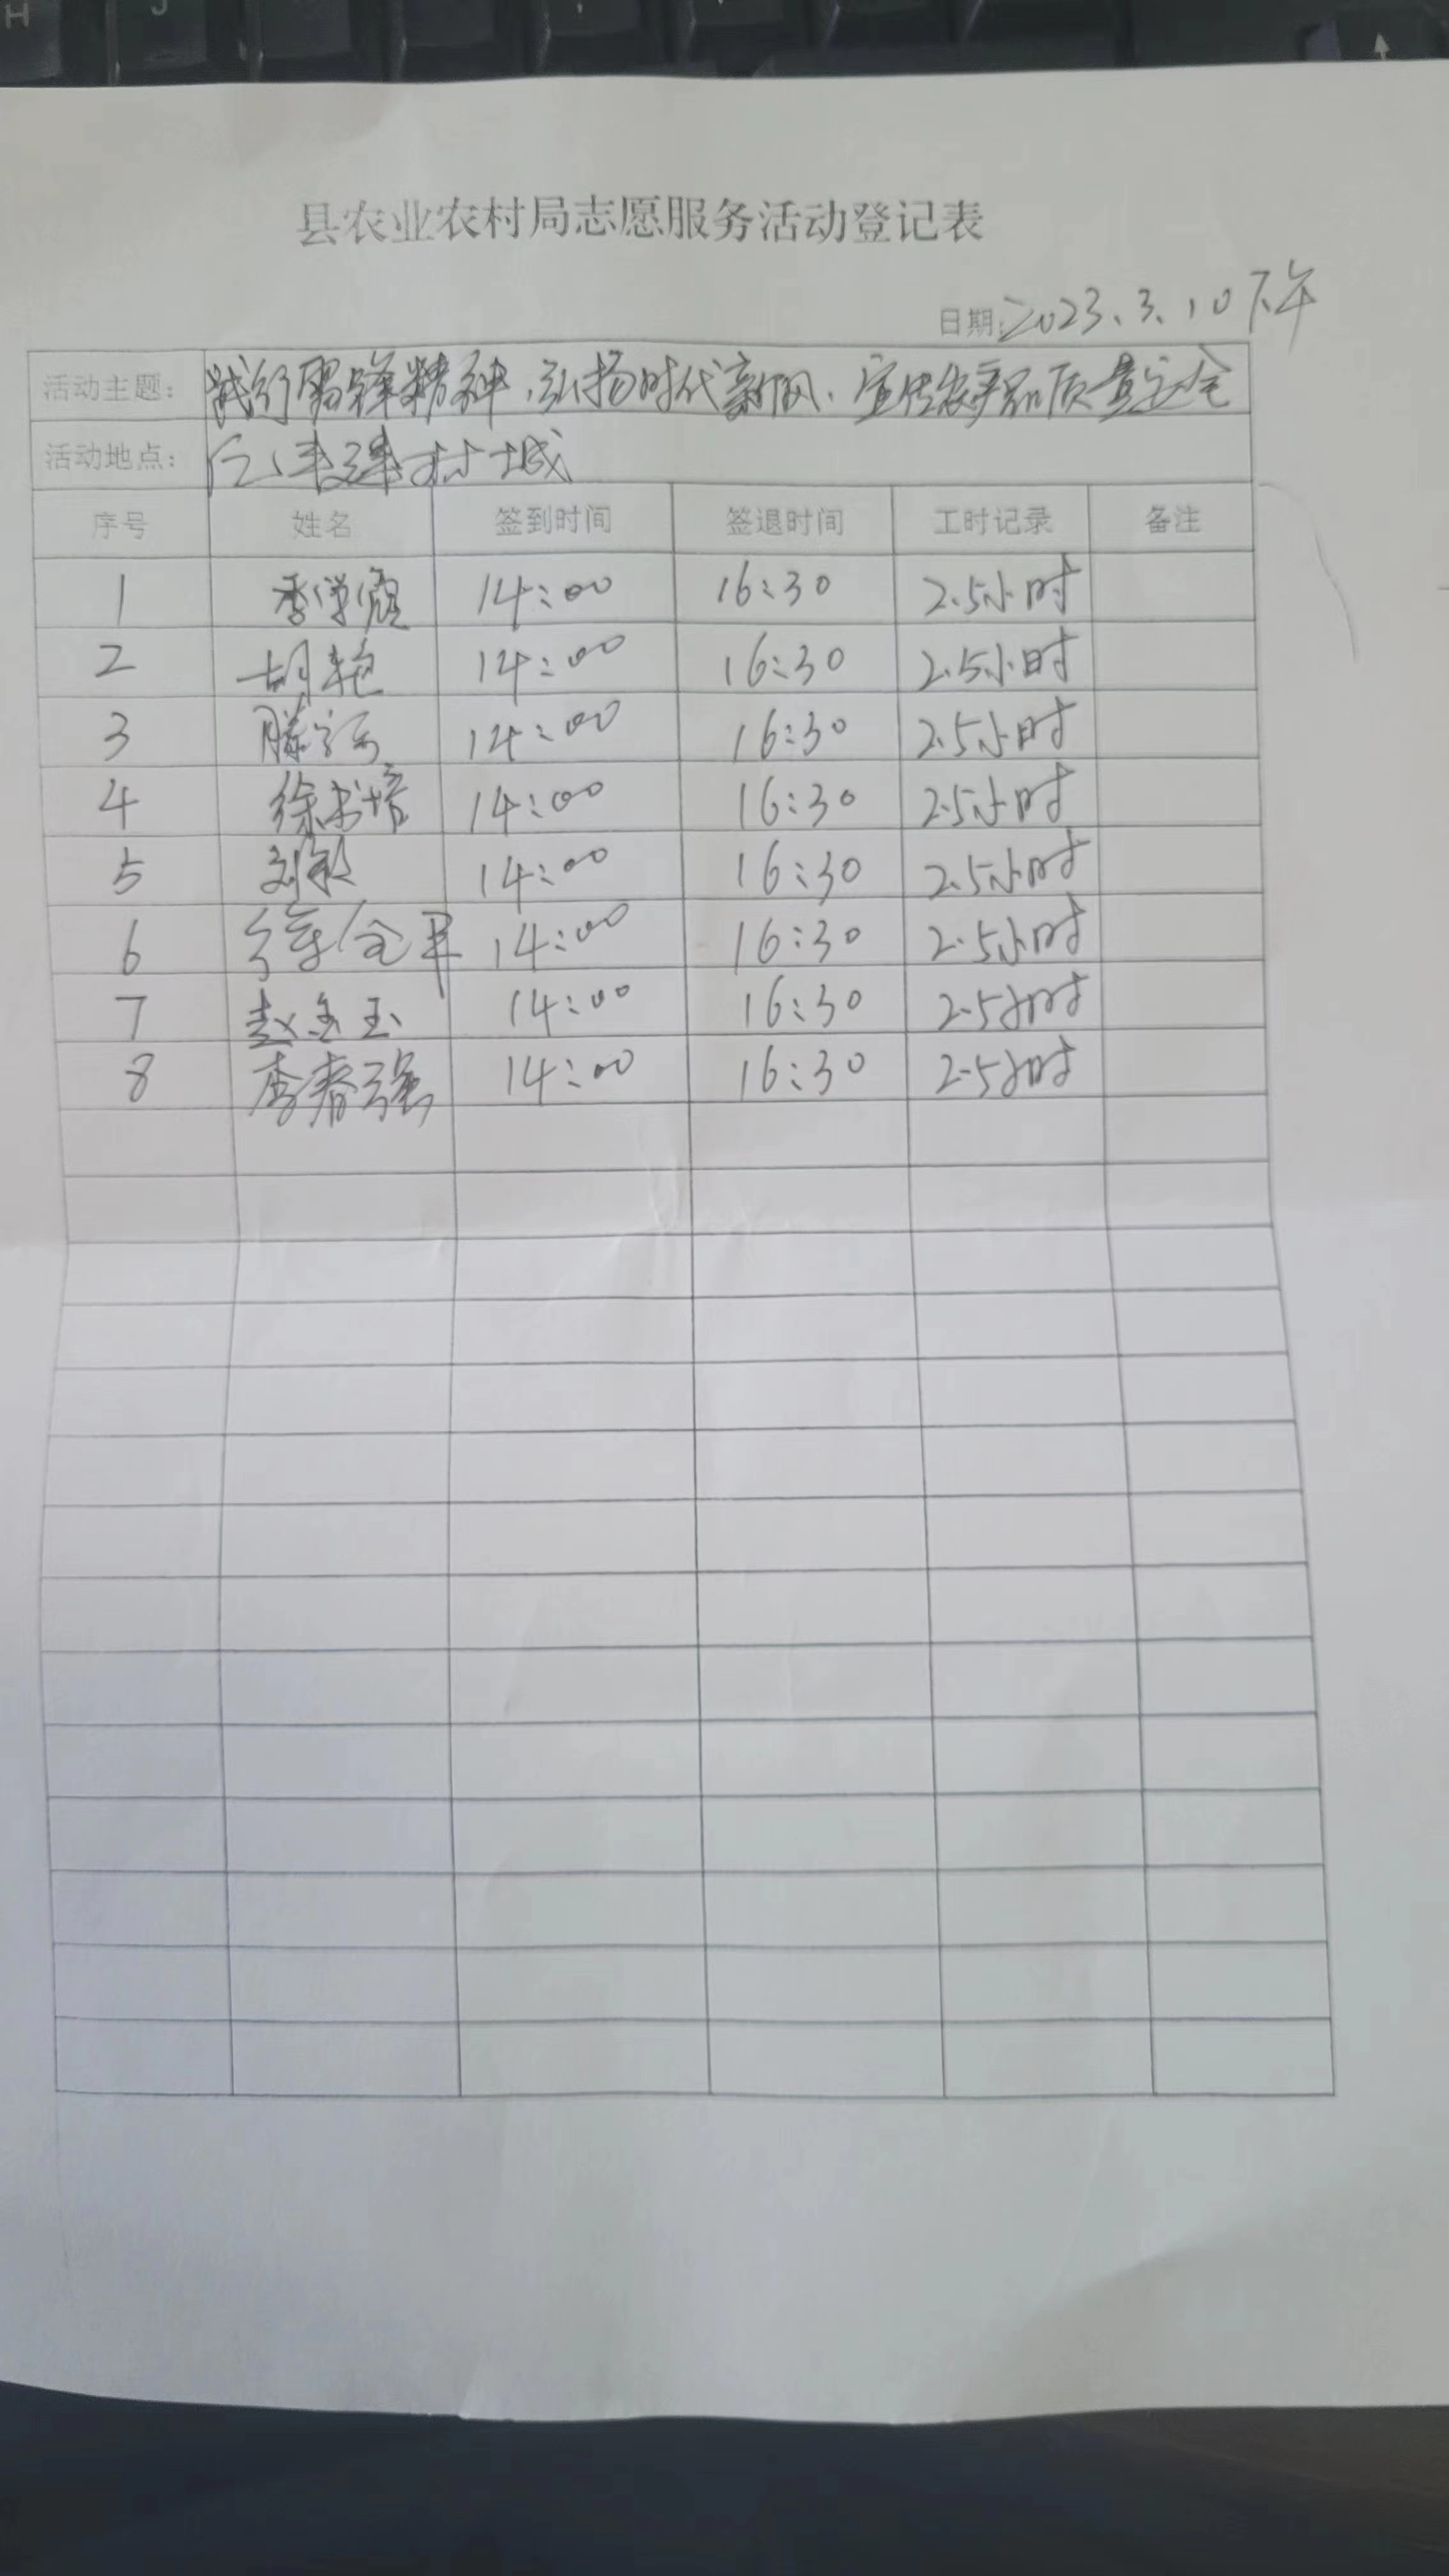 县农业农村局志愿服务活动登记表
日期:2023.3.10下午
活动主题: 践行雷锋精神、弘扬时代新风、宣传农产品质量安全
活动地点: 村城
序号 姓名 签到时间 签退时间 工时记录 备注
1 14:00 16:30 2.5小时
2 胡艳 14:00 16:30 2.5小时
3 滕 14:00 16:30 2.5小时
4 徐书培 14:00 16:30 2.5小时
5 刘敏 14:00 16:30 2.5小时
6 14:00 16:30 2.5小时
7 赵金玉 14:00 16:30 2.5小时
8 李春强 14:00 16:30 2.5小时